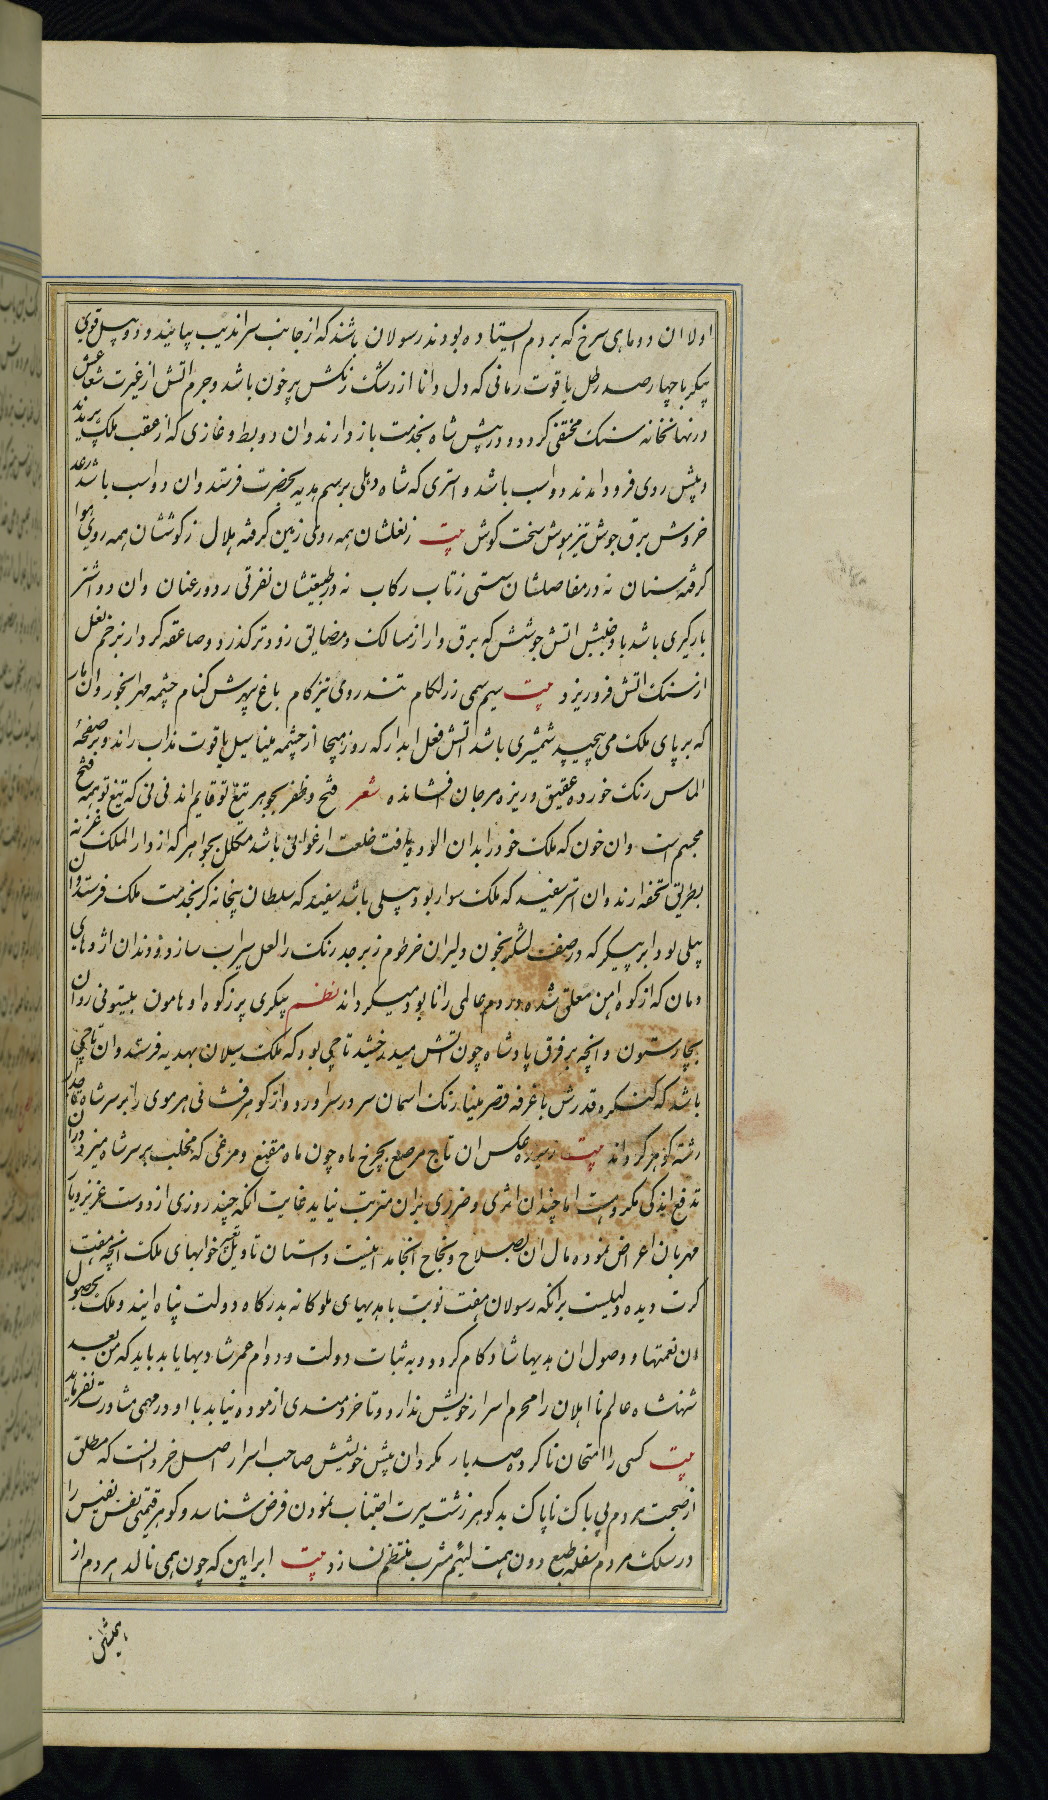 اولا ان دو ماهی سرخ که بر دم ایستاده بودند رسولان باشند که از جانب سراندیب بیایند و دو پیل قوی
پیکر با چهارصد رطل یاقوت رمانی که دل دانا از رشک رنکش پر خون باشد و جرم اتش از غیرت شعاعش
در نهانخانه سنک مختفی کردد و در پیش شاه بخدمت باز دارند وان دو بط و غازی که از عقب ملک پریدند
و پیش روی فرود امدند دو اسب باشد و استری که شاه دهلی برسم هدیه بحضرت فرستد وان دو اسب باشد رعد
خروش برق جوش تیز هوش سخت کوش بیت ز نعلشان همه روی زمین کرفته هلال ز کوششان همه روی هوا
کرفته سنان نه در مفاصلشان سستی ز تاب رکاب نه در طبیعتشان نفرتی ز دور عنان وان دو استر
بارکیری باشد باد جنبش اتش جوشش که برق وار از مسالک و مضایق زودتر کذرد و صاعقه کردار بزخم نعل
از سنک اتش فرو ریزد بیت سیم سمی زر لکام تند روی تیز کام باغ سپهرش کنام چشمه مهر ابخور وان مار
که بر پای ملک می پیچید شمشیری باشد اتش فعل ابدار که روز هیجا از چشمه مینا سیل یاقوت مذاب راند و بر صفحه
الماس رنک خورده عقیق و ریزه مرجان افشانده شعر فتح و ظفر بجوهر تیغ تو قایم اند نی نی که تیغ تو همه فتح
مجسم است وان خون که ملک خود را بدان الوده یافت خلعت ارغوانی باشد مکلل بجواهر که از دار الملک غزنه
بطریق تحفه ارند وان استر سفید که ملک سوار بود پیلی باشد سفید که سلطان بیجانکر بخدمت ملک فرستد وان
پیلی بود ابر پیکر که در صف لشکر بخون دلیران خرطوم زبرجد رنک را لعل سیراب سازد و دندان اژدهای
دمان که از کوه اهن معلق شده در دم عالمی را نابود میکرداند نظم پیکری پر ز کوه او هامون بیستونی روان
بچار ستون وانچه بر فرق پادشاه چون اتش میدرخشید تاجی بود که ملک سیلان بهدیه فرستد وان تاجی
باشد که کنکره قدرش با غرفه قصر مینا رنک اسمان سر در سر اورد و از کوهر فشانی هر موی را بر سر شاه
رشته کوهر کرداند بیت عکس ان تاج مرصع بچرخ ماه چون ماه مقنع ومرغی که مخلب بر سر شاه میزد
توقع اندکی مکروهست اما چندان اثری و ضرری بران مترتب نیاید غایت انکه چند روزی از دوست عزیز و یار
مهربان اعراض نموده مال ان بصلاح و نجاح انجامد اینست داستان تاویل تعبیر خوابهای ملک انچه هفت
کرت دیده دلیلست برانکه رسولان هفت نوبت با هدیهای ملوکانه بدرکاه دولت پناه ایند و ملک بحصول
ان نعمتها و وصول ان هدیها شادکام کردد و به ثبات دولت و دوام عمر شادیها یابد باید که من بعد
شهنشاه عالم نا اهلان را محرم اسرار خویش ندارد و تا خردمندی ازموده نیابد با او در مهمی مشاورت نفرماید
بیت کسی را امتحان ناکرده صد بار مکردان پیش خویشش صاحب اسرار اصل خرد انست که مطلق
از صحبت مردم بی باک ناپاک بدکوهر زشت سیرت اجتناب نمودن فرض شناسد و کوهر قیمتی نفس نفیس را
در سلک مردم سفله طبع دون همت لئیم مشرب منتظم نسازد بیت اب را بین که چون همی نالد هر دم از
همنشین